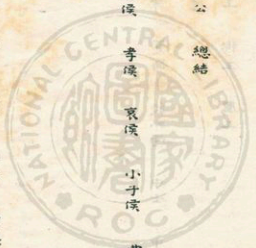 公　總結
侯　孝侯　哀侯　小子侯
NATIONAL CENTRAL LIBRARY
R.O.C.
國家圖書館